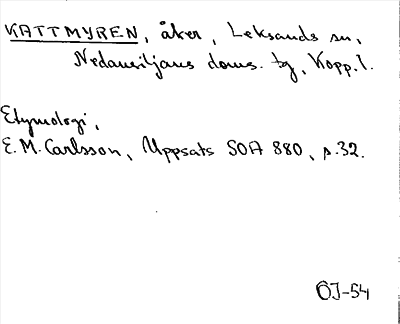 KATTMYREN, åker, Leksands sn,
Nedansiljans doms. tg, Kopp. l.
Etymologi,
E.M. Carlsson, Uppsats SOA 880, s. 32.
ÖJ-54